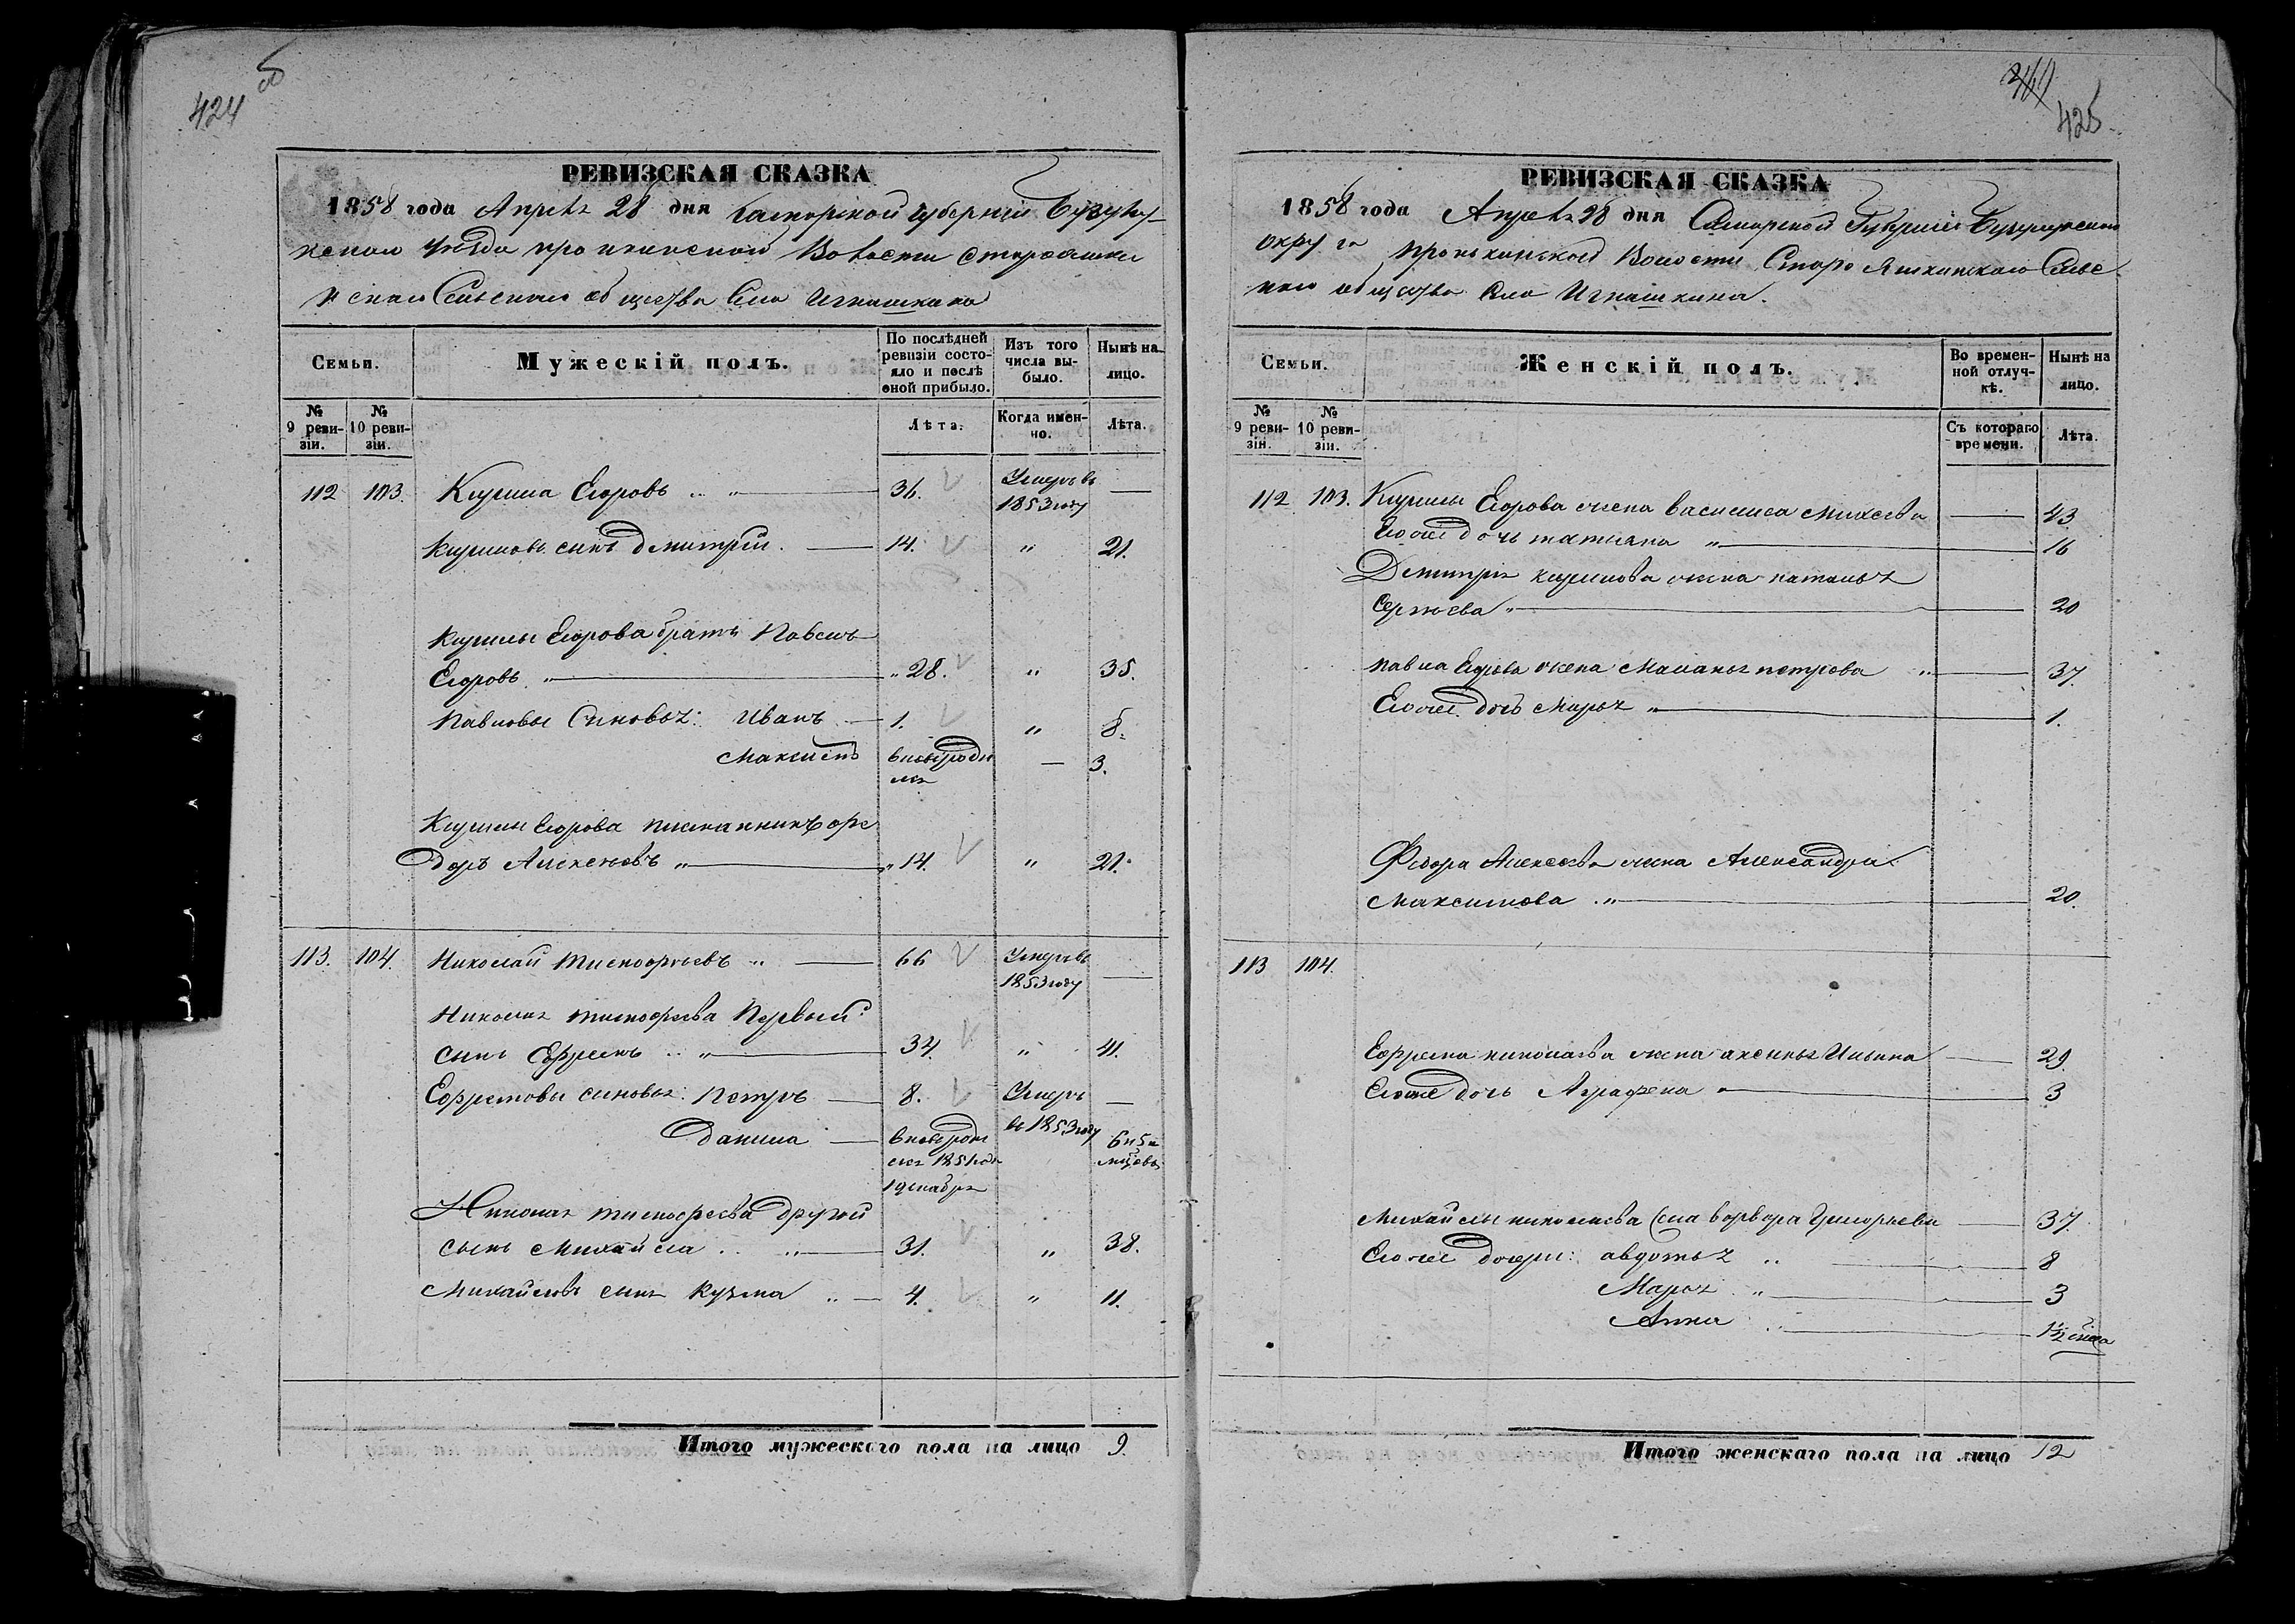 424
РЕВИЗСКАЯ СКАЗКА
1858 года Апреля 28 дня Самарской губернии Бузулу-
кскаго уезда пронькинской Волости старояшки
нскаго Сельскаго общества Села Игнашкина
Семьи.
Мужескій полъ.
По послѣдней ревизіи состояло и послѣ оной прибыло.
Изъ того числа выбыло.
Нынѣ на лицо.
№ 9 ревизіи.
№ 10 ревизіи.
Лѣта.
Когда именно.
Лѣта.
112 103. Кирила Егоровъ 36. Умеръ въ 1853 году —
Кириловъ сынъ Дмитрий. 14. " 21.
Кирилы Егорова братъ Павелъ
Егоровъ " 28. " 35.
Павловы Сыновья: Иванъ 1. " 8.
Максимъ вновь родился — 3.
Кирилы Егорова племянникъ Фе
доръ Алексеевъ " 14. " 21.
113. 104. Николай Тимофеевъ " 66 Умеръ въ 1853 году —
Николая Тимофеева Первый
сынъ Ефремъ " 34. " 41.
Ефремовы сыновья: Петръ 8. Умеръ въ 1853 году —
Данила вновь родился 1851 года 1 декабря 6 и 5 мѣсяцовъ
Николая Тимофеева другой
сынъ Михайла " 31. " 38.
Михайловъ сынъ Кузма 4. " 11.
Итого мужескаго пола на лицо 9.
425.
РЕВИЗСКАЯ СКАЗКА
1858 года Апреля 28 дня Самарской Губернии Бузулукскаго
округа пронькинской Волости Старо Яшкинскаго Сельс
каго общества Села Игнашкина.
Семьи.
Женскій полъ.
Во временной отлучкѣ.
Нынѣ на лицо.
№ 9 ревизіи.
№ 10 ревизіи.
Съ котораго времени.
Лѣта.
112 103. Кирилы Егорова жена Василиса Михеева 43
Егоже дочь татьяна " 16
Дмитрия кирилова жена наталья
Сергеева " 20
Павла Егорова жена Маланья петрова " 37.
Егоже дочь Марья " 1.
Федора Алексеева жена Александра
Максимова " 20.
113 104.
Ефрема николаева жена аксинья Ильина 29.
Егоже дочь Аграфена " 3
Михайлы николаева жена варвара Григорьева 37.
Егоже дочери: авдотья " 8
Марья " 3
Анна 1½
Итого женскаго пола на лицо 12